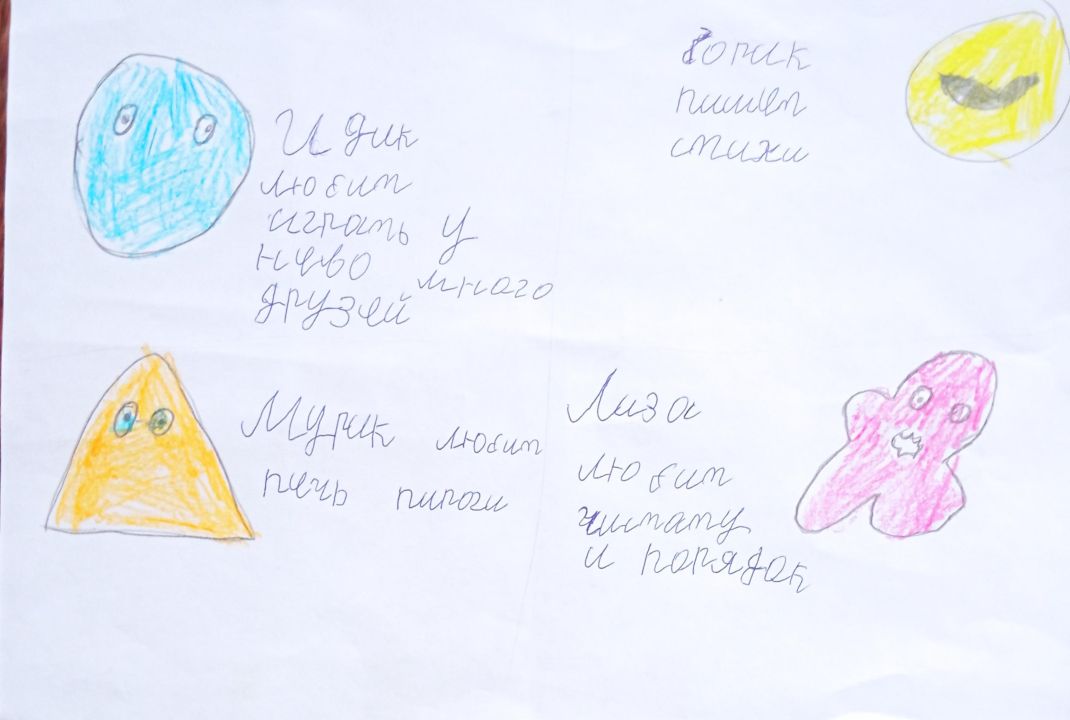 Идик
любит
играть у
нево много
друзей
пишет
стихи
Мурик любит
печь пироги
Лиза
любит
чистату
и порядок